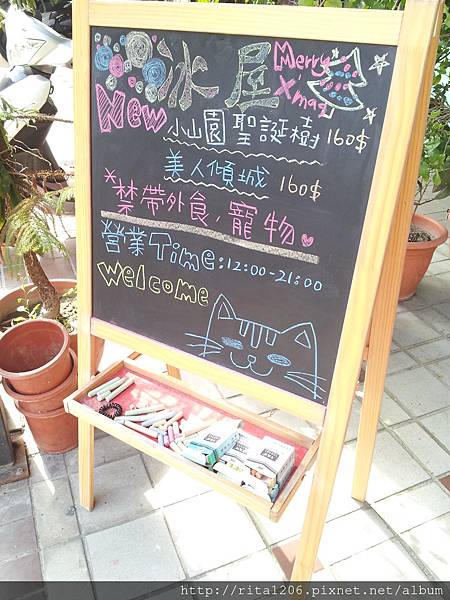 冰屋
Merry X'mas
New 小山園聖誕樹 160$
美人傾城 160$
*禁帶外食,寵物
營業Time:12:00-21:00
Welcome
http://rita1206.pixnet.net/album